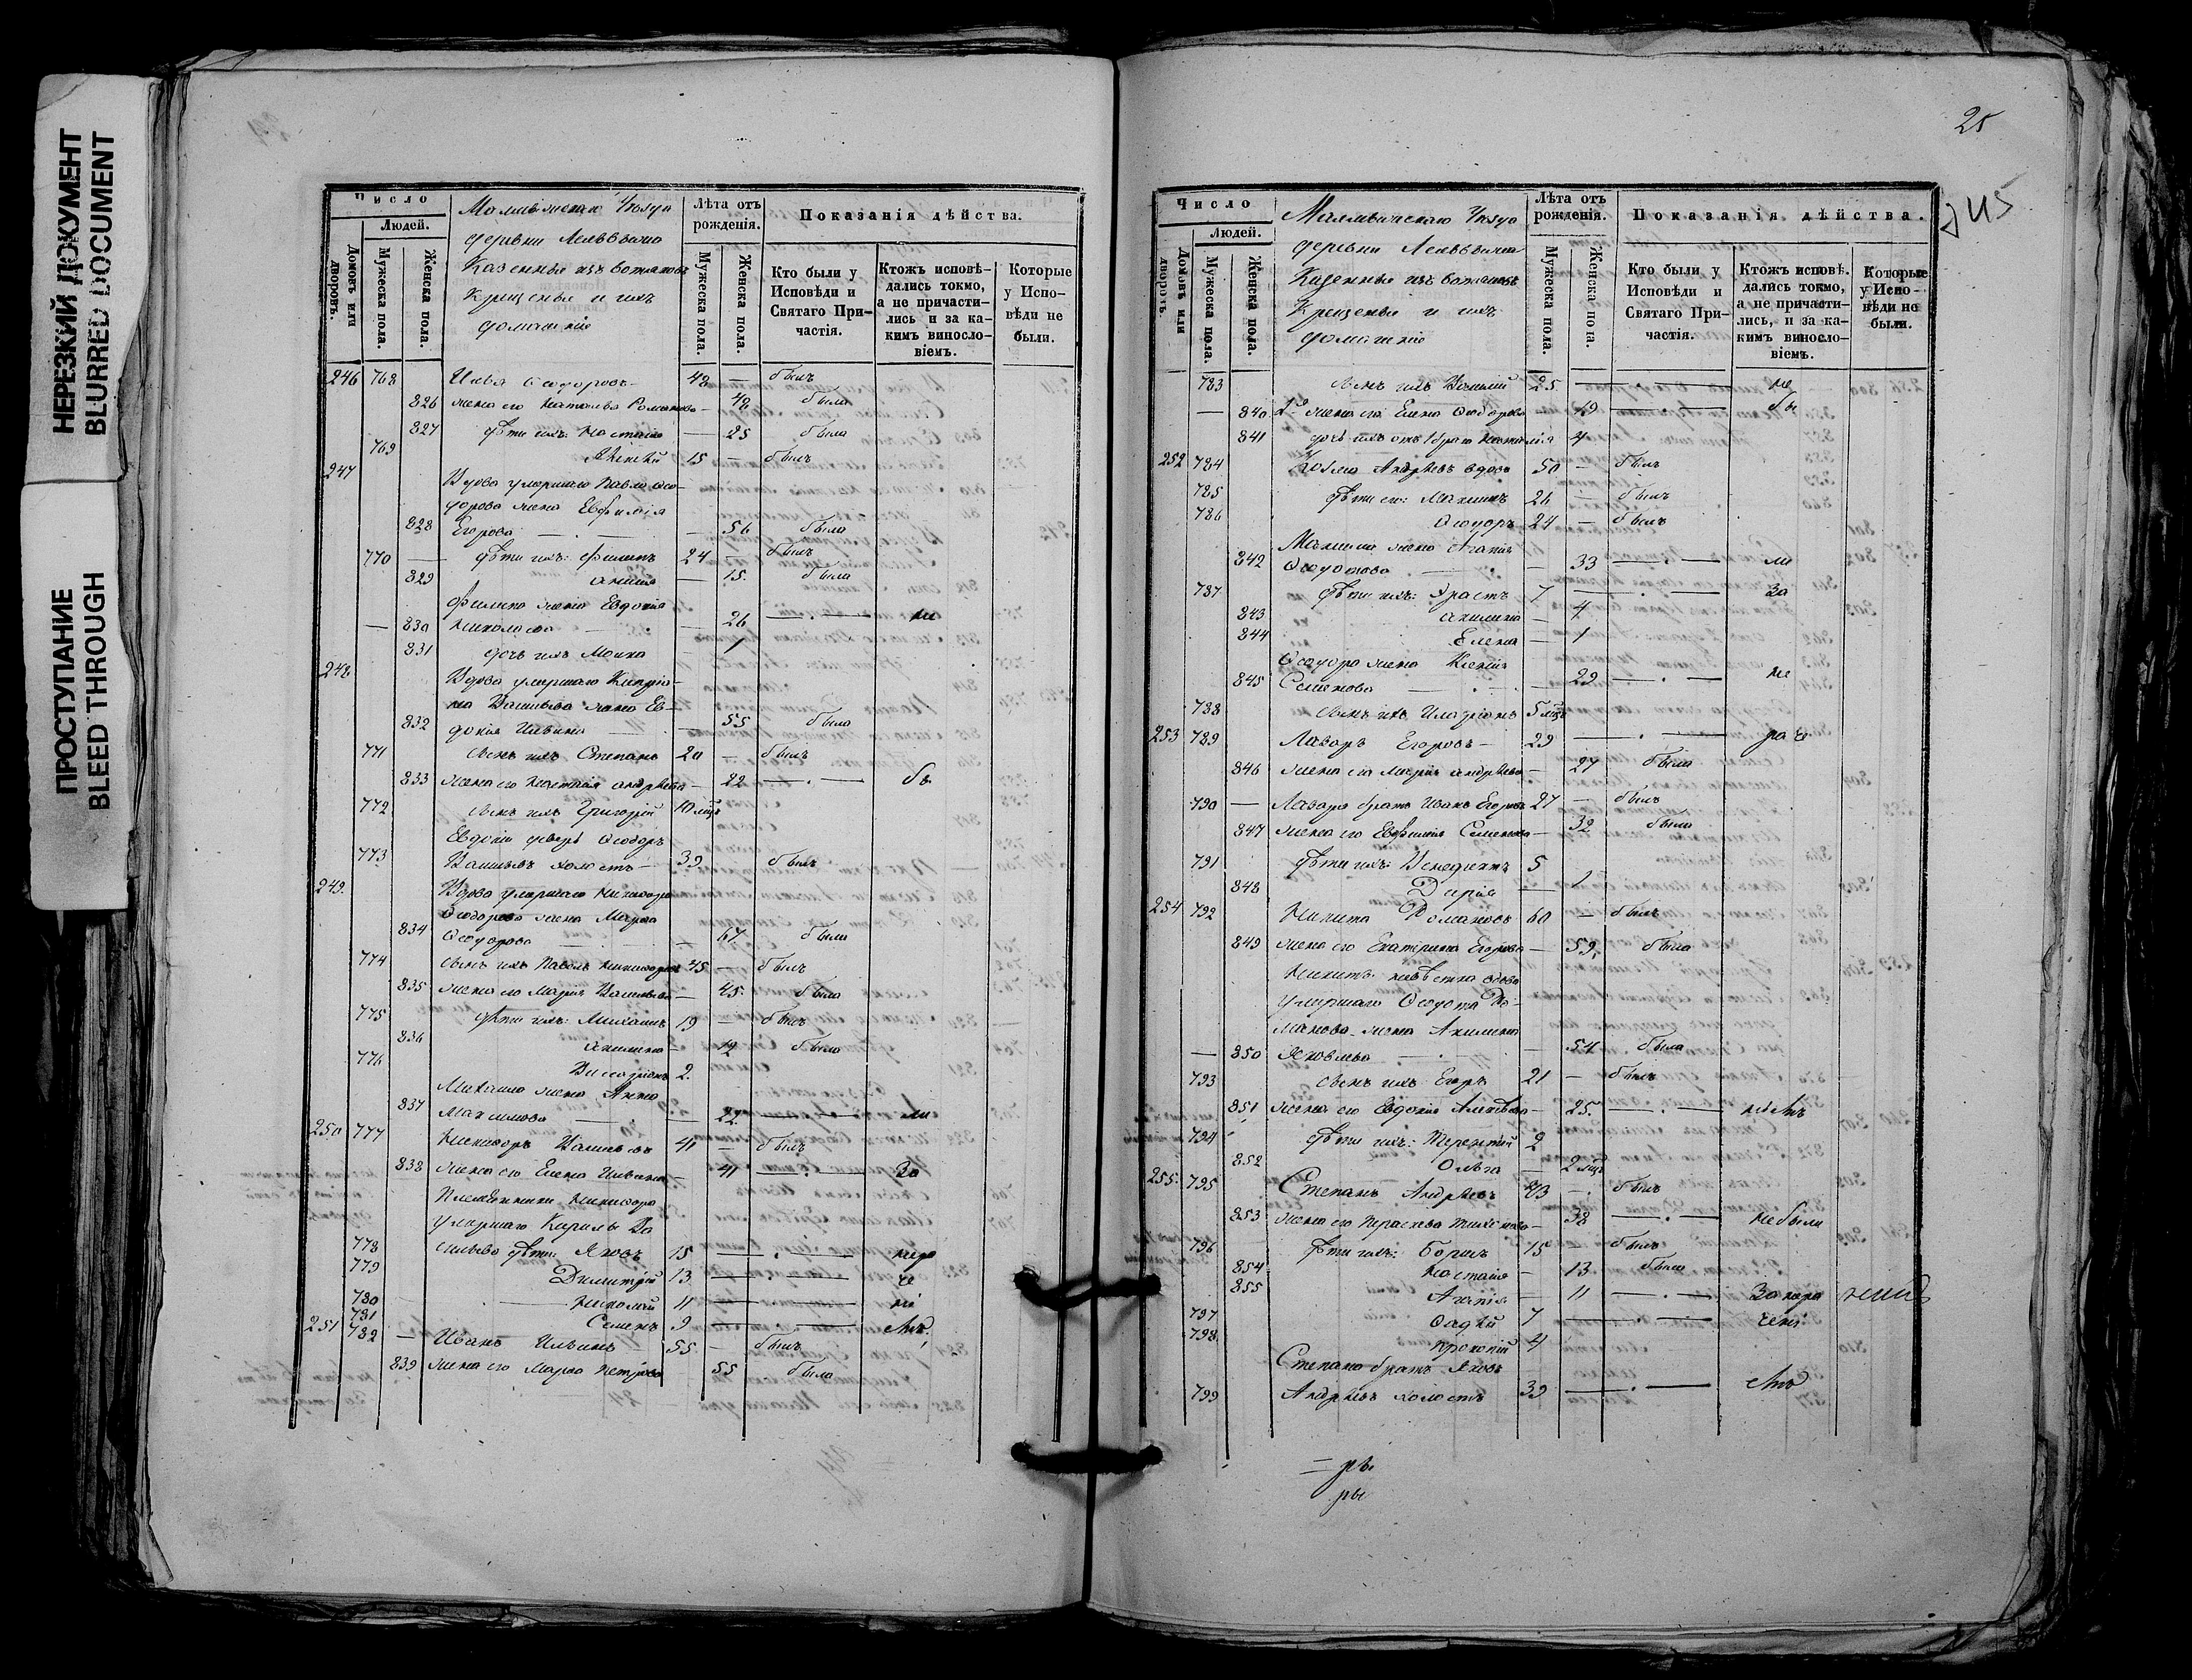 НЕРЕЗКИЙ ДОКУМЕНТ
BLURRED DOCUMENT
ПРОСТУПАНИЕ
BLEED THROUGH
Число
Людей.
Домовъ или дворовъ.
Мужеска пола.
Женска пола.
Уѣзда
деревни
Казенные изъ вотяковъ
Крещеные и ихъ
домашніе
Лѣта отъ рожденія.
Мужеска пола.
Женска пола.
Показанія дѣйства.
Кто были у Исповѣди и Святаго Причастія.
Ктожъ исповѣдались токмо, а не причастились и за какимъ винословіемъ.
Которые у Исповѣди не были.
246 768 Илья Ѳеодоровъ 48 — былъ
826 жена его Наталья Романова — 48 была
827 дѣти ихъ: Настасія — 25 была
769 Алексѣй 15 — былъ
247 Вдова умершаго Павла Ѳео-
дорова жена Евфимія
828 Егорова — 56 была
770 — дѣти ихъ: Филипъ 24 — былъ
829 — 15 была
Филипа жена Евдокія
— 830 Николаева — 26 — не
831 дочь ихъ — 1
248 Вдова умершаго Кипріа-
на Васильева жена Ев-
832 докія Ильина — 55 была
771 сынъ ихъ Степанъ 20 — былъ
833 жена его Настасія Андрѣева — 22 — бы
772 сынъ ихъ Григорій 10 мѣц
Евдокіи деверь Ѳеодоръ
773 Васильевъ холостъ 39 былъ
249. Вдова умершаго Никифора
Ѳеодорова жена Марѳа
834 Ѳеодорова — 67 была
774 сынъ ихъ Павелъ Никифоровъ 45 — былъ
835 жена его Марія Васильева — 45 была
775 дѣти ихъ: Михаилъ 19 — былъ
836 Акилина — 12 была
776 Виссаріонъ 2.
Михаила жена Анна
837 Максимова — 22 — ли
250 777 Никифоръ Васильевъ 41 — былъ
838 жена его Елена Ильина — 41 — За
Племянники Никифора
умершаго Кирила Ва
778 сильева дѣти: Яковъ 15 — нера
779 Димитрій 13 — че
780 Николай 11 — ні
781 Семенъ 9 — емъ.
251 782 — Иванъ Ильинъ 55 — былъ
839 жена его Марѳа Петрова 55 была
25
Число
Людей.
Домовъ или дворовъ.
Мужеска пола.
Женска пола.
Уѣзда
деревни
Казенные изъ вотяковъ
Крещеные и ихъ
домашніе
Лѣта отъ рожденія.
Мужеска пола.
Женска пола.
Показанія дѣйства.
Кто были у Исповѣди и Святаго Причастія.
Ктожъ исповѣдались токмо, а не причастились, и за какимъ винословіемъ.
Которые у Исповѣди не были.
783 сынъ ихъ Василій 25 — не
— 840 2я жена его Елена Ѳеодорова 19 — бы
841 дочь ихъ отъ 1 брака Наталія 4
252 784 Козма Андрѣевъ вдовъ 50 — былъ
785 дѣти его: Максимъ 26 — былъ
786 Ѳеодоръ 24 — былъ
Максима жена Агапія
842 Ѳеодотова — 33 — ли
787 дѣти ихъ: Ерастъ 7 — За
843 Акилина — 4
844 Елена — 1
Ѳеодора жена Ксенія
845 Семенова — 29 — не
788 сынъ ихъ Иларіонъ 5 мѣц
253 789 Лазарь Егоровъ — 29 — раче
846 жена его Марія Андрѣева — 27 была
790 — Лазаря братъ Иванъ Егоровъ 27 — былъ
847 жена его Евфимія Семенова — 32 была
791 дѣти ихъ: Венедиктъ 5
848 Дарія — 1
254 792 Никита Романовъ 60 — былъ
849 жена его Екатерина Егорова — 59 была
Никиты невѣстка вдова
умершаго Ѳеодота Ро-
манова жена Акилина
— 850 Яковлева — 54 была
793 сынъ ихъ Егоръ 21 — былъ
851 жена его Евдокія — 25 — ніемъ
794 дѣти ихъ: Терентій 2
852 Ольга — 2 мѣц
255. 795 Степанъ Андрѣевъ 43 — былъ
853 жена его Параскева Тихонова — 38 — не были
796 дѣти ихъ: Борисъ 15 — былъ
854 Настасія — 13 была
855 — 11 — За нера
797 Ѳадѣй 7 — чені
798 Прокопій 4
Степана братъ Яковъ
799 Андрѣевъ холостъ 39 — емъ